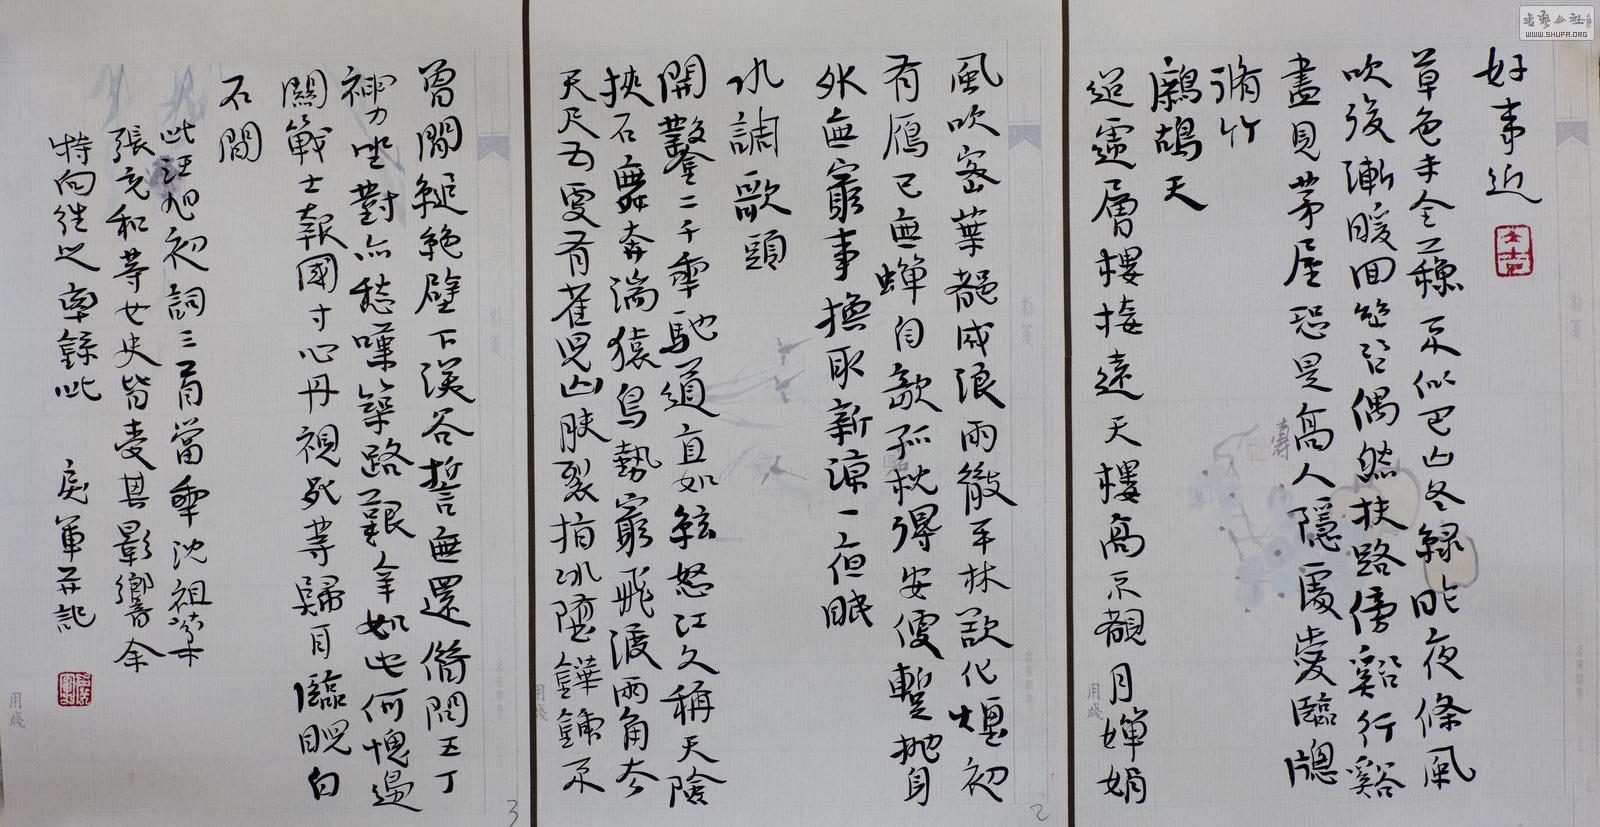 好事近
草色未全蘇不似巴山冬綠昨夜條風
吹後漸暖回
偶然扶路傍谿行谿
盡見茅屋恐是高人隱處愛臨牕
脩竹
鷓鴣天
迢遞層樓接遠天樓高不覩月嬋娟
風吹密葉都成浪雨徹平林欲化煙初
有雁已無蟬自欹孤枕得安便暫拋身
外無窮事換取新涼一夜眠
水調歌頭
開鑿二千年馳道直如絃怒江久稱天險
挾石舞奔湍猿鳥勢窮飛渡兩角夾
天尺五更有雀兒山脥裂指冰墮鏵鍊不
曾閒縋絕壁下深谷誓無還脩問五丁
神力坐對亦愁嘆築路艱辛如此何愧邊
關戰士報國寸心丹視死等歸耳臨睨白
石間
此汪旭初詞三首當年沈祖棻
張充和等女史皆受其影響余
特向往之率錄此
軍并記
書藝公社
WWW.SHUFA.ORG
用牋
用牋
用牋
壽
2
3